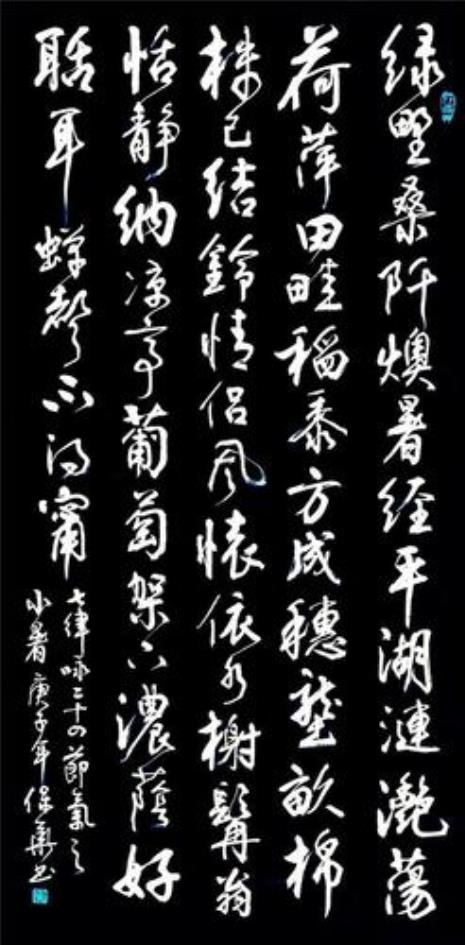 绿野桑阡燠暑经平湖涟滟荡
荷萍田畦稻黍方成穗垄亩棉
株已结铃情侣风怀依水榭髯翁
恬静纳凉亭葡萄架下浓荫好
聒耳蝉声不得宁
七律咏二十四节气之
小暑庚子年保华书